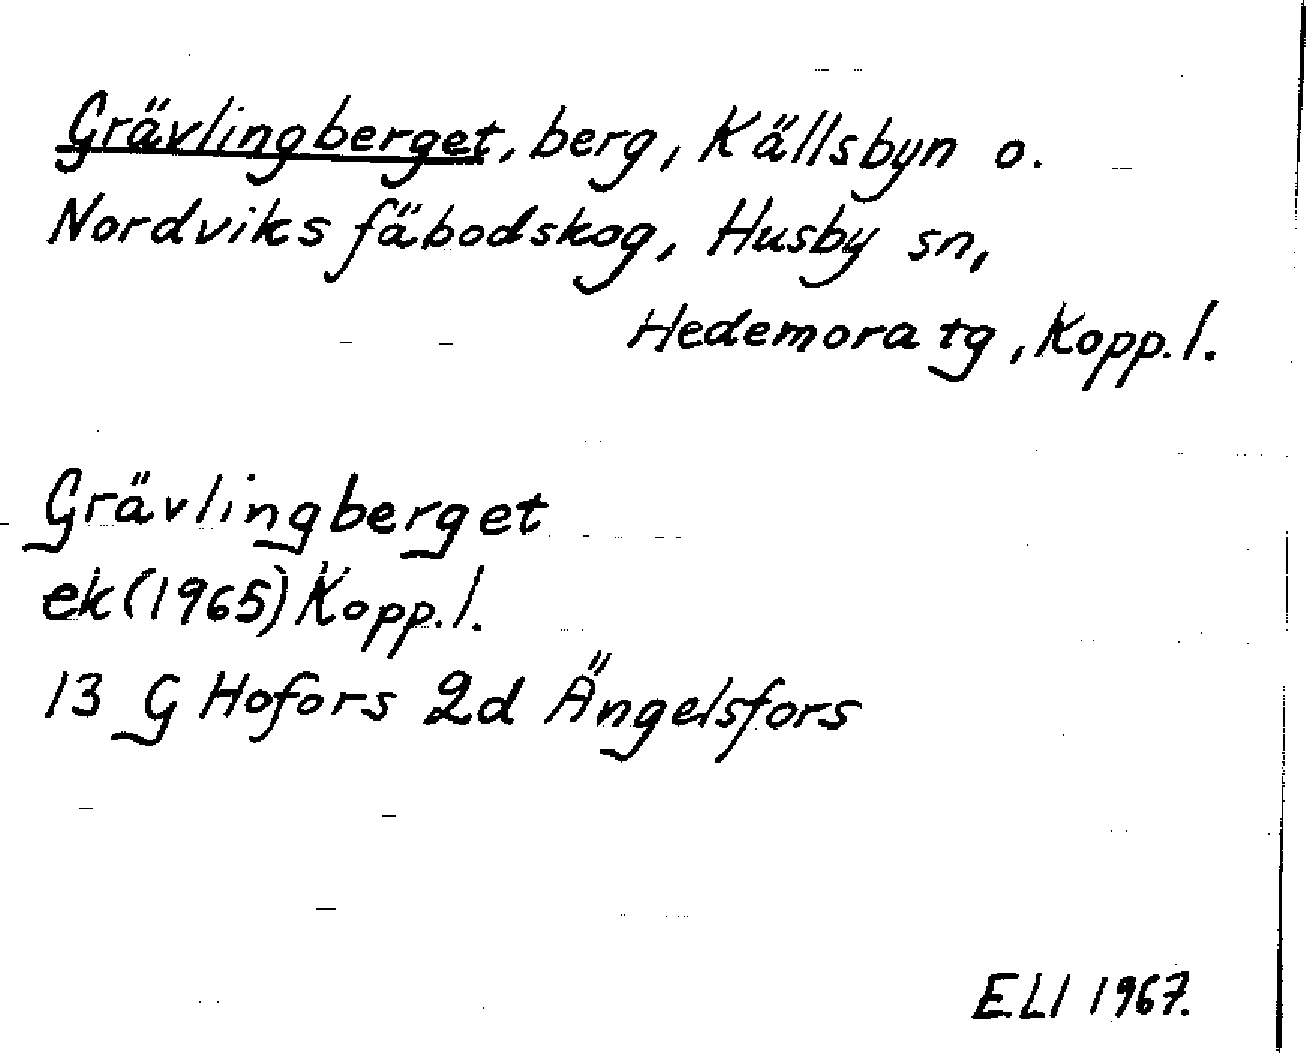 Grävlingberget, berg, Källsbyn o.
Nordviks fäbodskog, Husby sn,
Hedemora tg, Kopp. l.
Grävlingberget
ek (1965) Kopp. l.
13 G Hofors 2d Ängelsfors
ELI 1967.